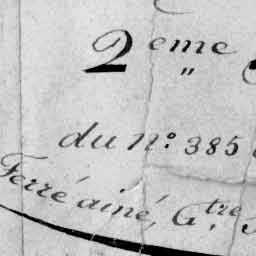 2eme
"
du n.º 385
Ferré ainé, G.tre